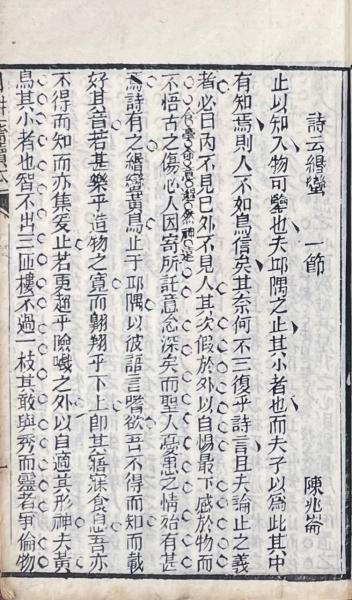 詩云緡蠻　一節　陳兆崙
止以知人物可鑒也夫邱隅之止其小者也而夫子以為此其中
有知焉則人不如鳥信矣其奈何不三復乎詩言且夫論止之義
者必曰內不見已外不見人其次假於外以自惕最下感於物而
不悟古之傷心人因寄所託意念深矣而聖人憂患之情殆有甚
食毫命意超然神遠
焉詩有之緡蠻黃鳥止于邱隅以彼語言嗜欲吾不得而知而載
好其音若甚樂乎造物之寬而翺翔乎下上即其寤寐食息吾亦
不得而知而亦集爰止若更超乎險巇之外以自適其形神夫黃
鳥其小者也智不出三匝樓不過一枝其敢與秀而靈者爭倫物